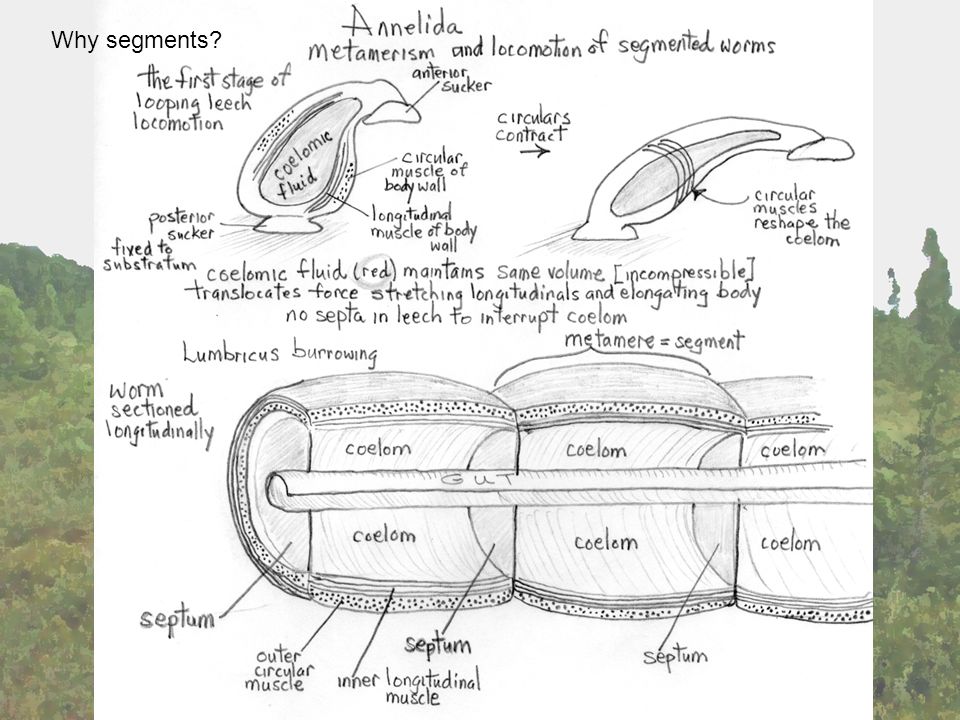 Why segments?
Annelida
metamerism and locomotion of segmented worms
the first stage of
looping leech
locomotion
anterior
sucker
coelomic
fluid
circular
muscle of
body wall
longitudinal
muscle of body
wall
posterior
sucker
fixed to
substratum
circulars
contract
circular
muscles
reshape the
coelom
coelomic fluid (red) maintains same volume [incompressible]
translocates force stretching longitudinals and elongating body
no septa in leech to interrupt coelom
Lumbricus burrowing
metamere = segment
worm
sectioned
longitudinally
coelom
coelom
coelom
GUT
coelom
coelom
coelom
septum
outer
circular
muscle
inner longitudinal
muscle
septum
septum